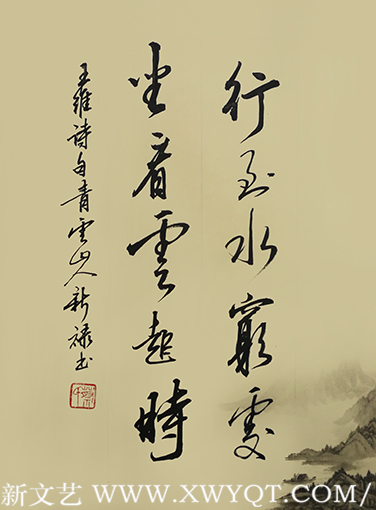 行到水窮處
坐看雲起時
王維詩句青雲山人新禄书
新文艺 WWW.XWYQT.COM/